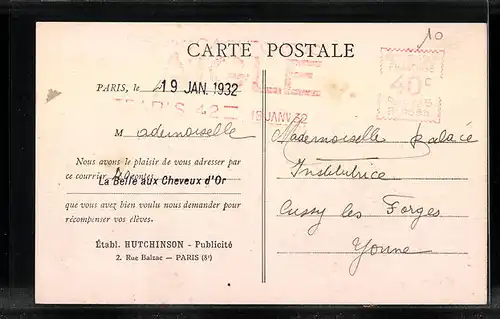 10
CARTE POSTALE
PARIS, le 19 JAN. 1932
PARIS 42
19 JANV 32
40 c
POSTES
Mademoiselle
Nous avons le plaisir de vous adresser par
ce courrier contes
La Belle aux Cheveux d'Or
que vous avez bien voulu nous demander pour
récompenser vos élèves.
Établ. HUTCHINSON - Publicité
2. Rue Balzac — PARIS (8e)
Mademoiselle
Institutrice
Cussy les Forges
Yonne